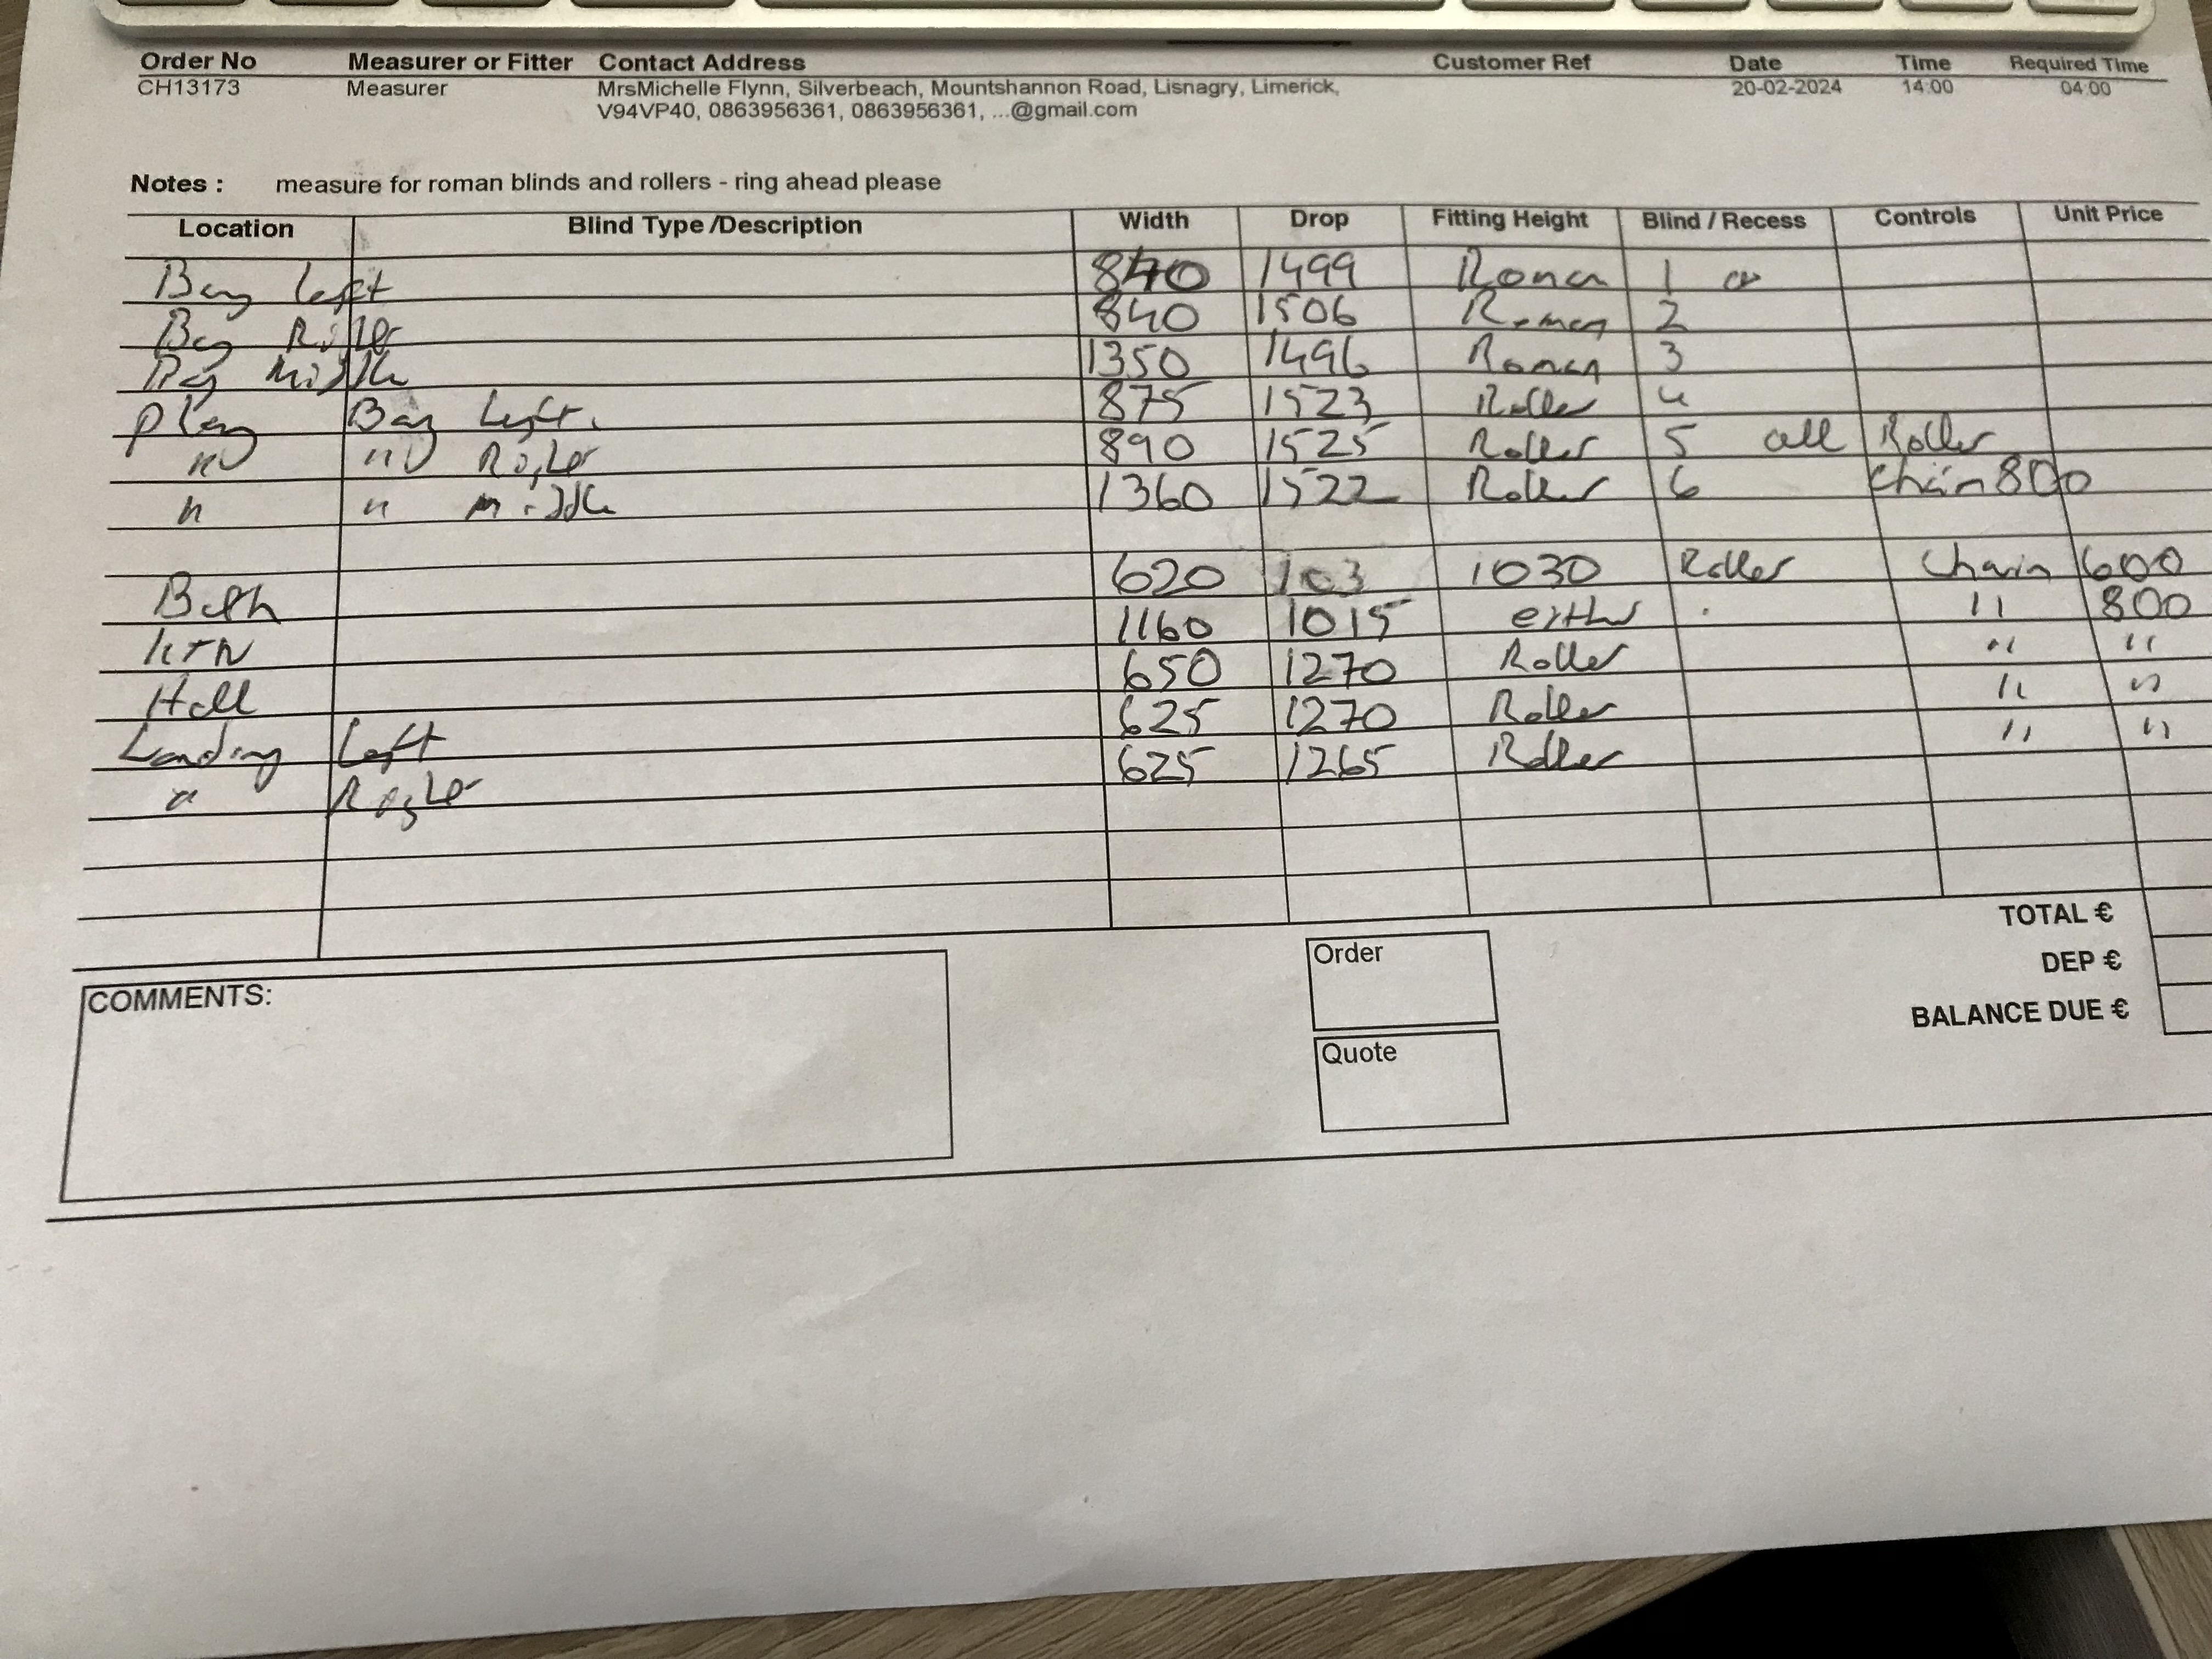 Order No Measurer or Fitter Contact Address Customer Ref Date Time Required Time
CH13173 Measurer MrsMichelle Flynn, Silverbeach, Mountshannon Road, Lisnagry, Limerick, 20-02-2024 14:00 04:00
V94VP40, 0863956361, 0863956361, ...@gmail.com
Notes : measure for roman blinds and rollers - ring ahead please
Location Blind Type /Description Width Drop Fitting Height Blind / Recess Controls Unit Price
Bay left 840 1499 Roman 1
Bay Right 840 1506 Roman 2
Bay Middle 1350 1496 Roman 3
Play Bay Left. 875 1523 Roller 4
" " Right 890 1525 Roller 5 all Roller
" " Middle 1360 1522 Roller 6 Chain 800
Bath 620 103 1030 Roller Chain 600
KTN 1160 1015 either " 800
Hall 650 1270 Roller " "
Landing Left 625 1270 Roller " "
" Right 625 1265 Roller " "
TOTAL €
DEP €
BALANCE DUE €
Order
Quote
COMMENTS: